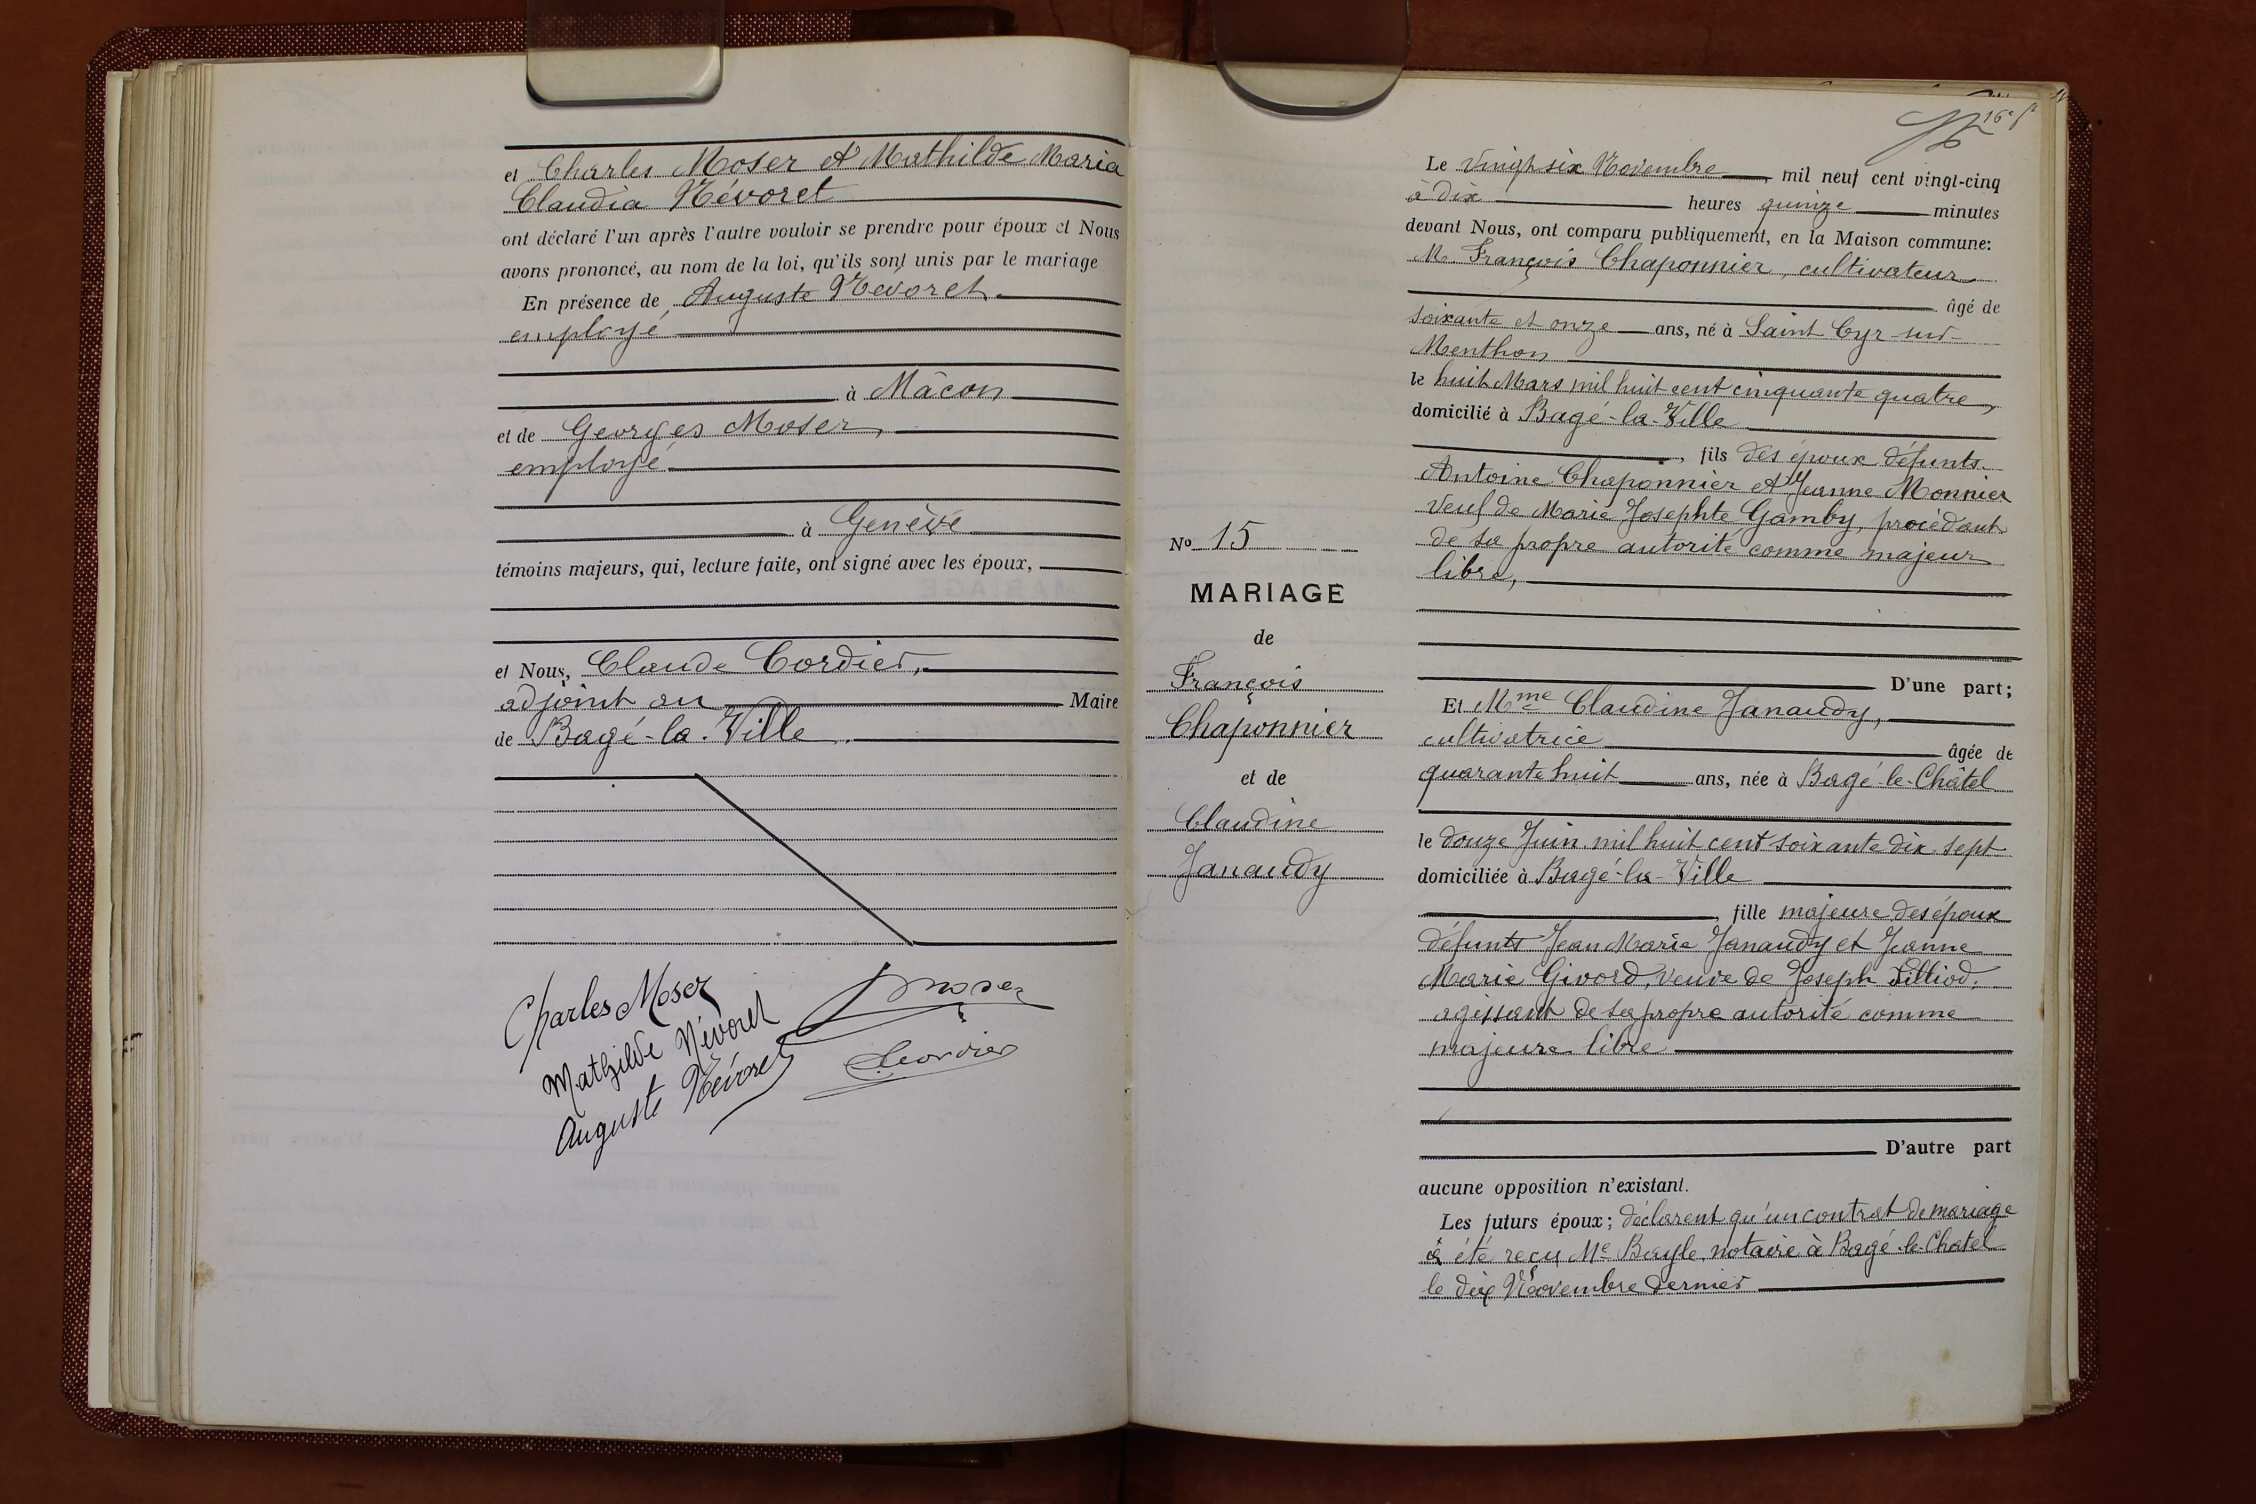 et Charles Moser et Mathilde Maria
Claudia Névoret
ont déclaré l'un après l'autre vouloir se prendre pour époux et Nous
avons prononcé, au nom de la loi, qu'ils sont unis par le mariage
En présence de Auguste Névoret
employé
à Mâcon
et de Georges Moser,
employé
à Genève
témoins majeurs, qui, lecture faite, ont signé avec les époux,
et Nous, Claude Cordier,
adjoint au Maire
de Bagé-la-Ville
Charles Moser
Moser
Mathilde Névoret
Cordier
Auguste Névoret
16e ft
Le vingt six Novembre, mil neuf cent vingt-cinq
à dix heures quinze minutes
devant Nous, ont comparu publiquement, en la Maison commune:
M. François Chaponnier, cultivateur
âgé de
soixante et onze ans, né à Saint Cyr-sur-
Menthon
le huit Mars mil huit cent cinquante quatre,
domicilié à Bagé-la-Ville
, fils des époux défunts
Antoine Chaponnier et Jeanne Monnier
veuf de Marie Josephte Gamby, procédant
de sa propre autorité comme majeur
libre,
D'une part;
Et Mme Claudine Janaudy,
cultivatrice âgée de
quarante huit ans, née à Bagé-le-Châtel
le douze Juin mil huit cent soixante dix sept
domiciliée à Bagé-la-Ville
, fille majeure des époux
défunts Jean Marie Janaudy et Jeanne
Marie Givord, veuve de Joseph Dilliod,
agissant de sa propre autorité comme
majeure libre
D'autre part
aucune opposition n'existant.
Les futurs époux; déclarent qu'un contrat de mariage
a été reçu Me Bayle, notaire à Bagé-le-Chatel
le dix Novembre dernier
No 15
MARIAGE
de
François
Chaponnier
et de
Claudine
Janaudy